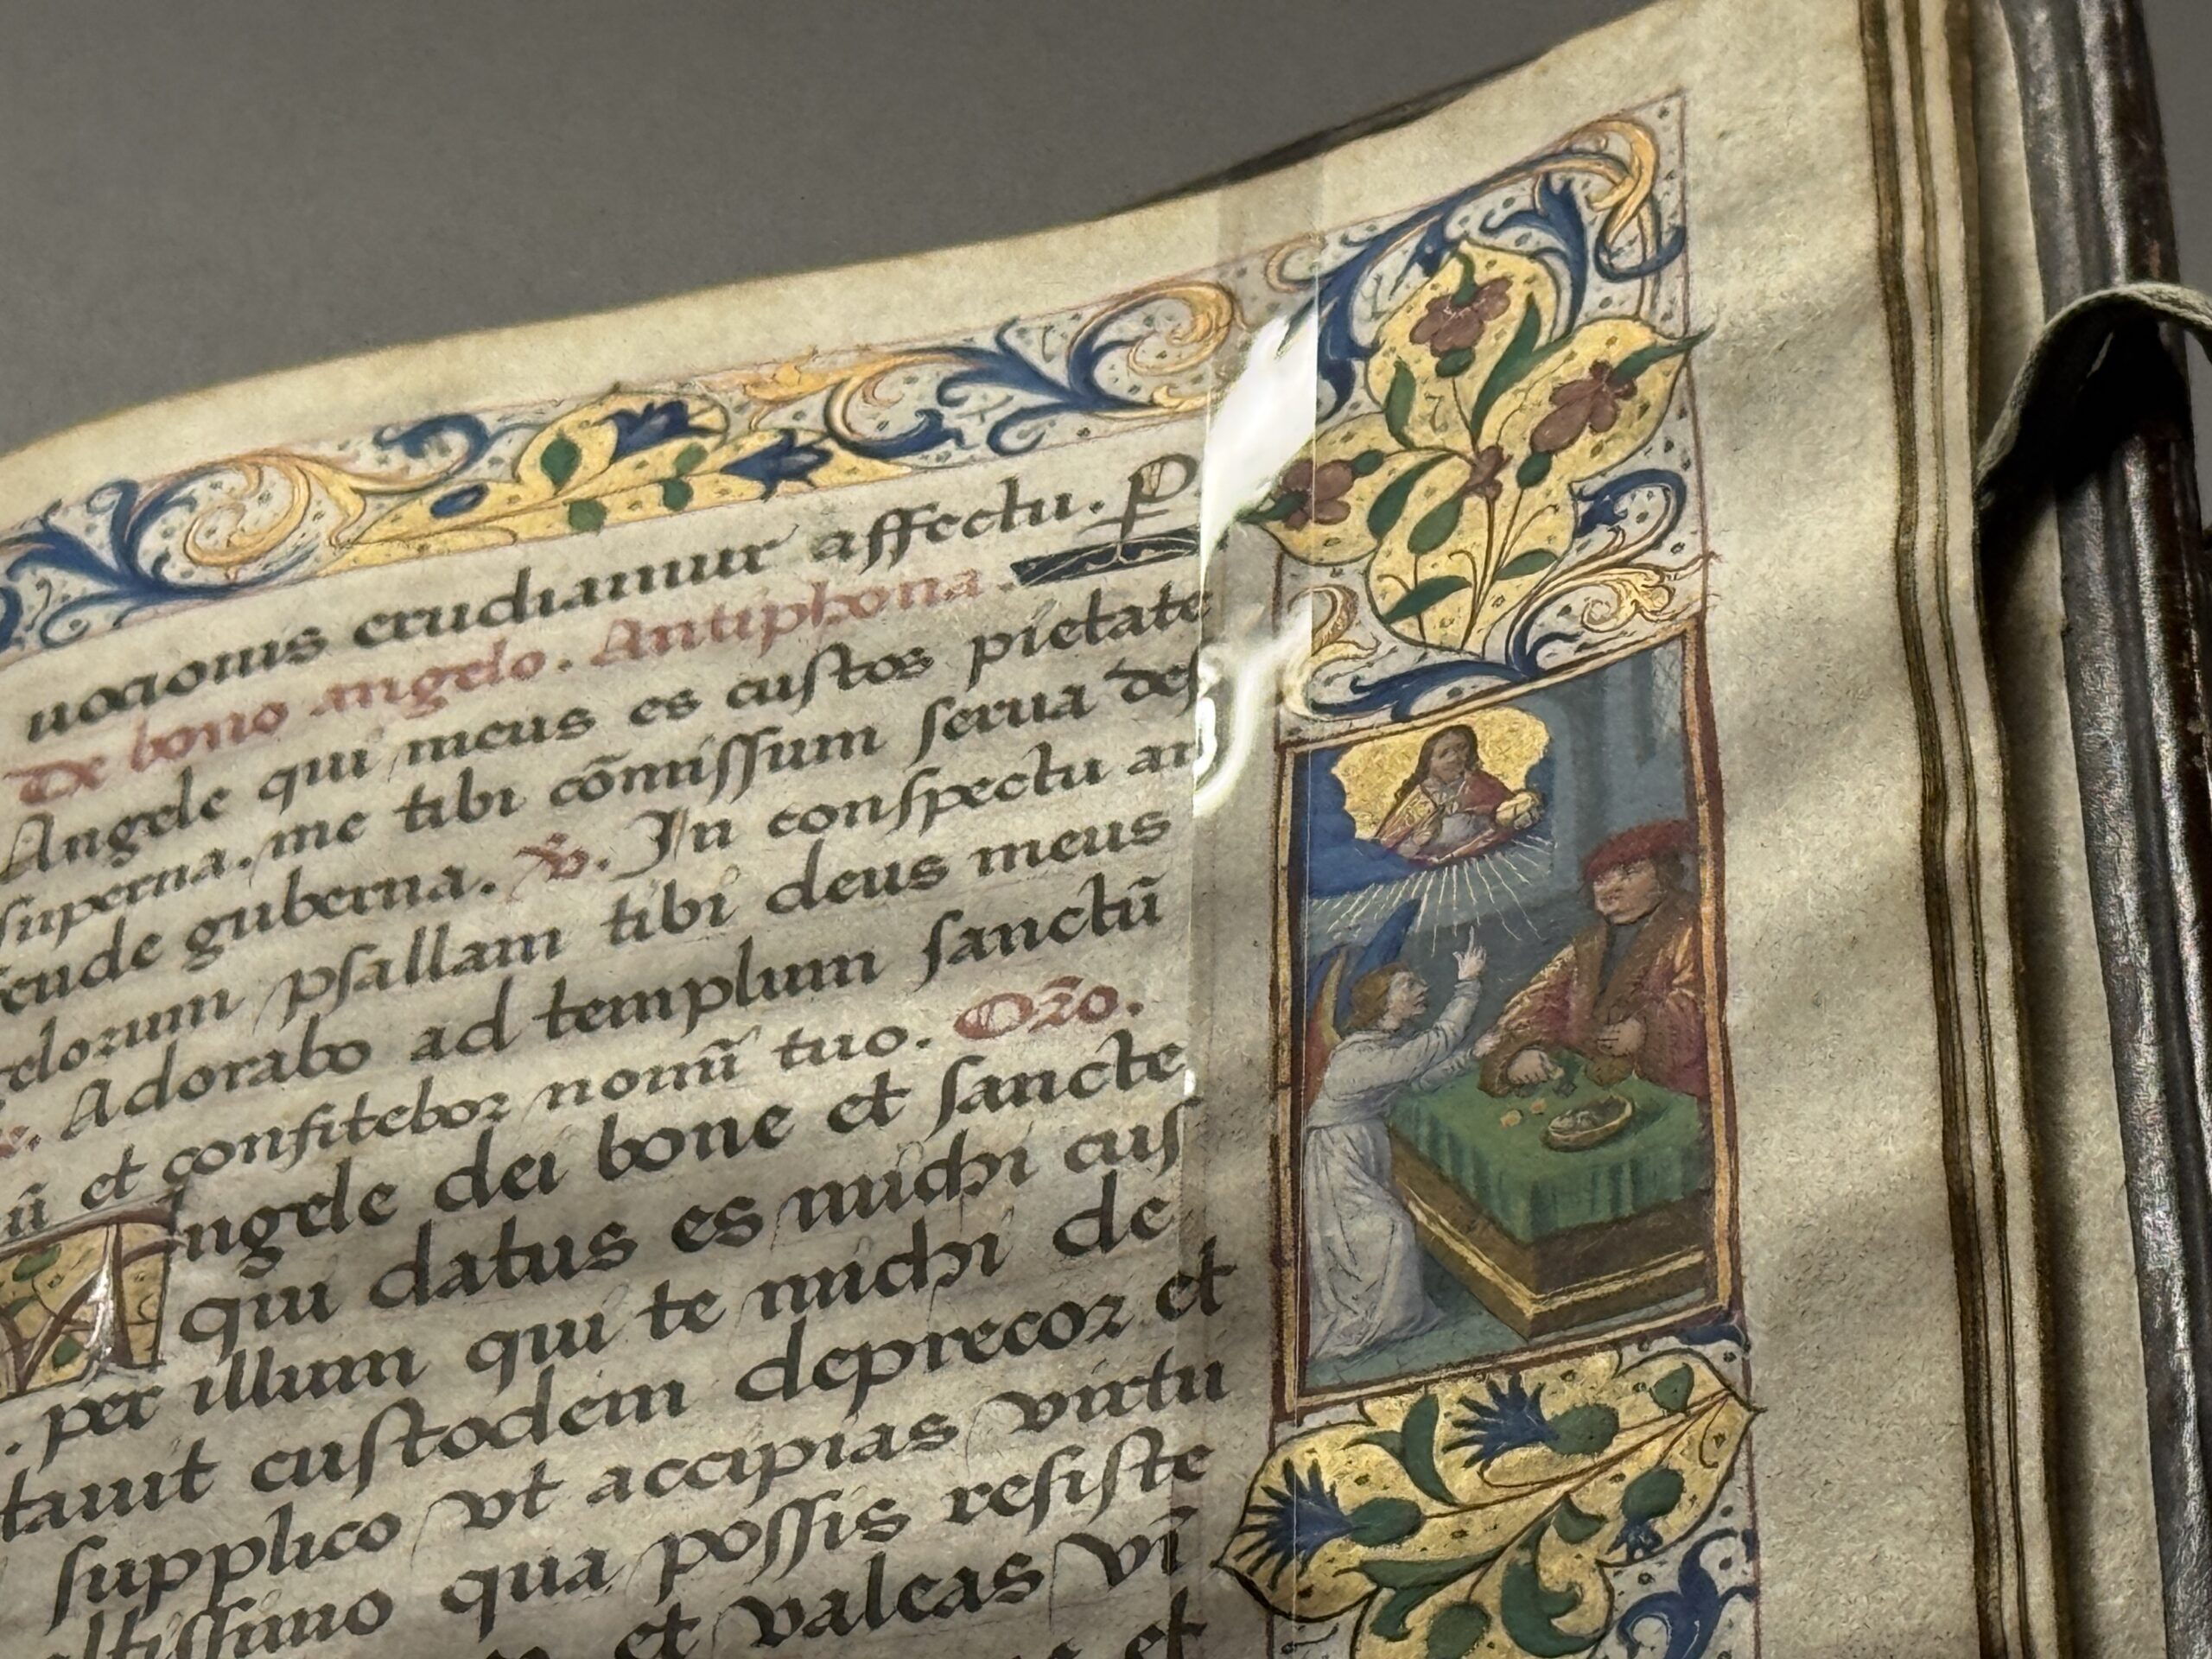 uocionis erudiamur affectu. P
De bono angelo. Antiphona.
Angele qui meus es custos pietate
superna. me tibi cõmissum serua def
fende guberna. ℣. In conspectu an
gelorum psallam tibi deus meus
Adorabo ad templum sanctũ
ũ et confitebor nomĩ tuo. Orõ.
Angele dei bone et sancte
qui datus es michi cus
. per illum qui te michi de
tauit custodem deprecor et
supplico vt accipias virtu
altissimo qua possis resiste
et valeas vi
et